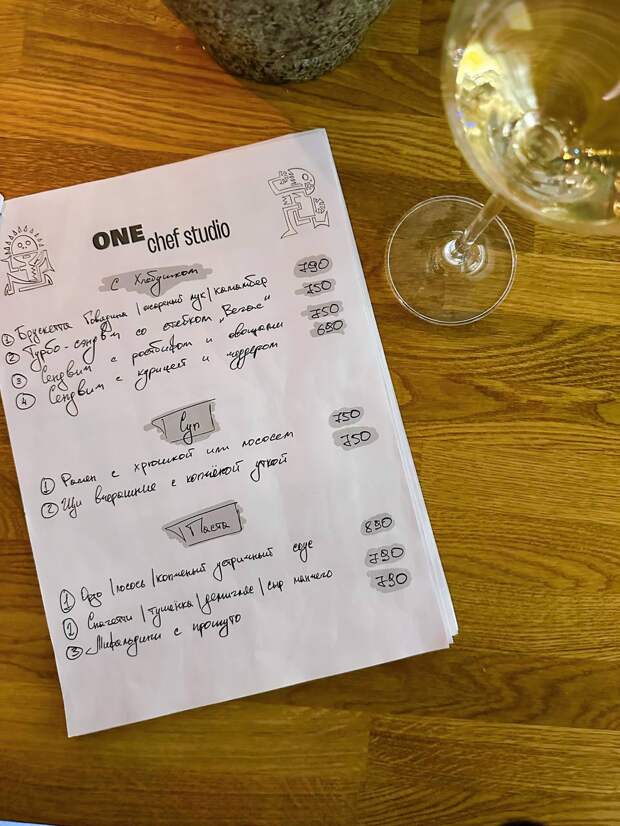 ONE chef studio
с Хлебушком
① Брускетта Говядина | опорный лук | камамбер 790
② Турбо-сэндвич со стейком „Вегас" 750
③ Сендвич с ростбифом и овощами 750
④ Сендвич с курицей и чеддером 650
Суп
① Рамен с хрюшкой или лососем 750
② Щи вчерашние с копчёной уткой 750
Паста
① Орзо | лосось | копченый устричный соус 890
② Спагетти | тушёнка | демиглас | сыр манчего 790
③ Мафальдини с прошуто 790